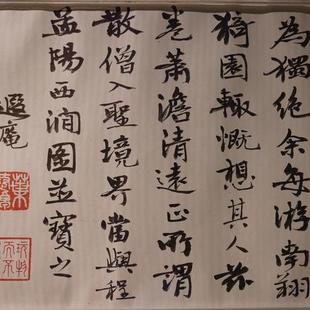 為獨絕余每游南翔
猗園輒慨想其人茲
卷蕭澹清遠正所謂
散僧入聖境畀當與程
孟陽西澗圖並寶之
遐庵